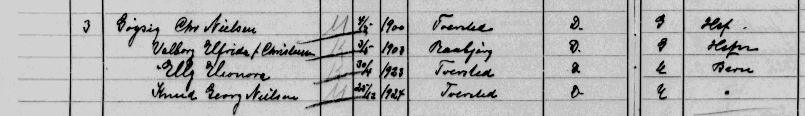 3 Göysig Chr Nielsen M 4/5 1900 Tversted D. G Hof.
Valborg Elfrida f. Christensen K 3/5 1903 Raabjerg D. G Hofn
Elly Eleonora K 30/4 1923 Tversted D. U Barn
Knud Georg Nielsen M 25/12 1924 Tversted D. U "